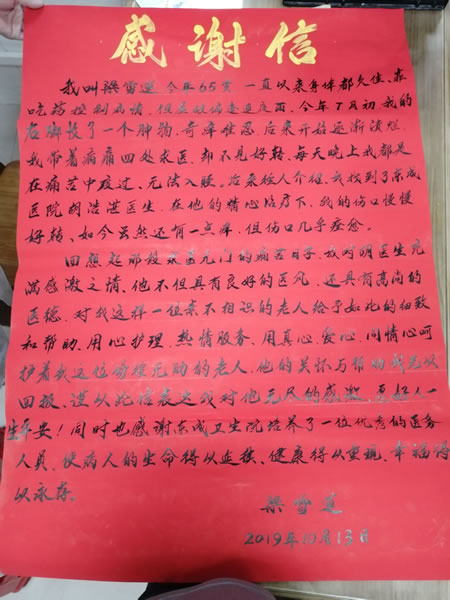 感谢信
我叫梁雪莲 今年65岁 一直以来身体都欠佳、靠
吃药控制病情,但
今年7月初,我的
右脚长了一个肿物,奇痒难忍,后来开始逐渐溃烂,
我带着病痛四处求医,却不见好转,每天晚上我都是
在痛苦中度过、无法入眠。后来经人介绍,我找到了东成
医院胡浩湛医生,在他的精心治疗下,我的伤口慢慢
好转、如今虽然还有一点痒,但伤口几乎痊愈。
回想起那段求医无门的痛苦日子,我对胡医生充
满感激之情、他不但具有良好的医风、还具有高尚的
医德,对我这样一位素不相识的老人给予如此的细致
和帮助、用心护理、热情服务、用真心、爱心、同情心呵
护着我这位孤独无助的老人,他的关怀与帮助我无以
回报、谨以此信表达我对他无尽的感激、愿好人一
生平安!同时也感谢东成卫生院培养了一位优秀的医务
人员、使病人的生命得以延续、健康得以重现、幸福得
以永存、
梁雪莲
2019年10月13日